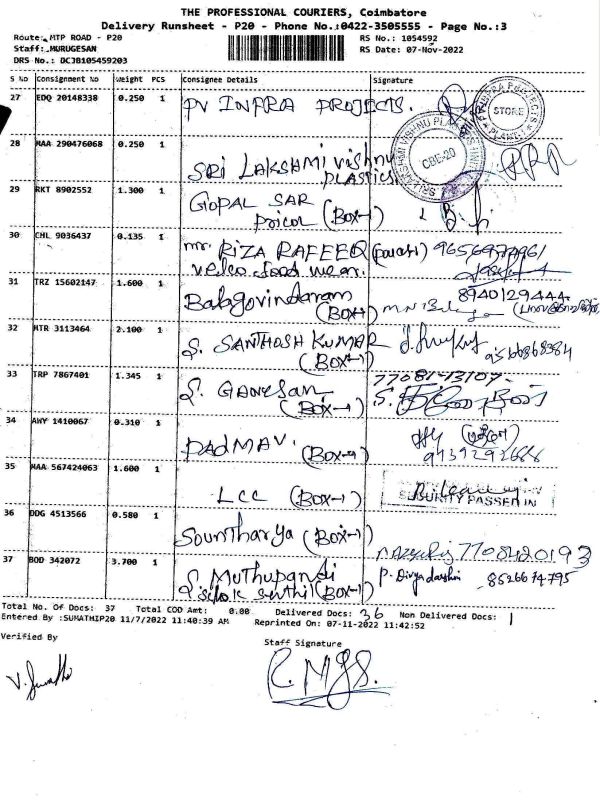 THE PROFESSIONAL COURIERS, Coimbatore
Delivery Runsheet - P20 - Phone No.:0422-3505555 - Page No.:3
Route: MTP ROAD - P20
RS No.: 1054592
Staff: MURUGESAN
RS Date: 07-Nov-2022
DRS No.: DCJB105459203
S No Consignment No Weight PCS Consignee Details Signature
27 EDQ 20148338 0.250 1 PV INFRA PROJECTS.
STORE
28 MAA 290476068 0.250 1 SRI LAKSHMI Vishnu
PLASTICS
CBE-20
29 RKT 8902552 1.300 1 GOPAL SAR
Pricol (BOX-1)
30 CHL 9036437 0.135 1 mr. RIZA RAFEEQ
velco food wear.
31 TRZ 15602147 1.600 1 Balagovindaram
(BOX-1)
8940129444
32 MTR 3113464 2.100 1 S. SANTHOSH KUMAR
(BOX-1)
33 TRP 7867401 1.345 1 S. GANESAN
(BOX-1)
77081-13107
34 AWY 1410067 0.310 1 PADMAV.
35 MAA 567424063 1.600 1 LCC (BOX-1)
SECURITY PASSED IN
36 DDG 4513566 0.580 1 Sountharya (BOX-1)
7708420193
37 BOD 342072 3.700 1 S. Muthupandi
(BOX-1)
P. Divyadarshni 8526674795
Total No. Of Docs: 37 Total COD Amt: 0.00 Delivered Docs: 36 Non Delivered Docs: 1
Entered By :SUMATHIP20 11/7/2022 11:40:39 AM Reprinted On: 07-11-2022 11:42:52
Verified By
Staff Signature